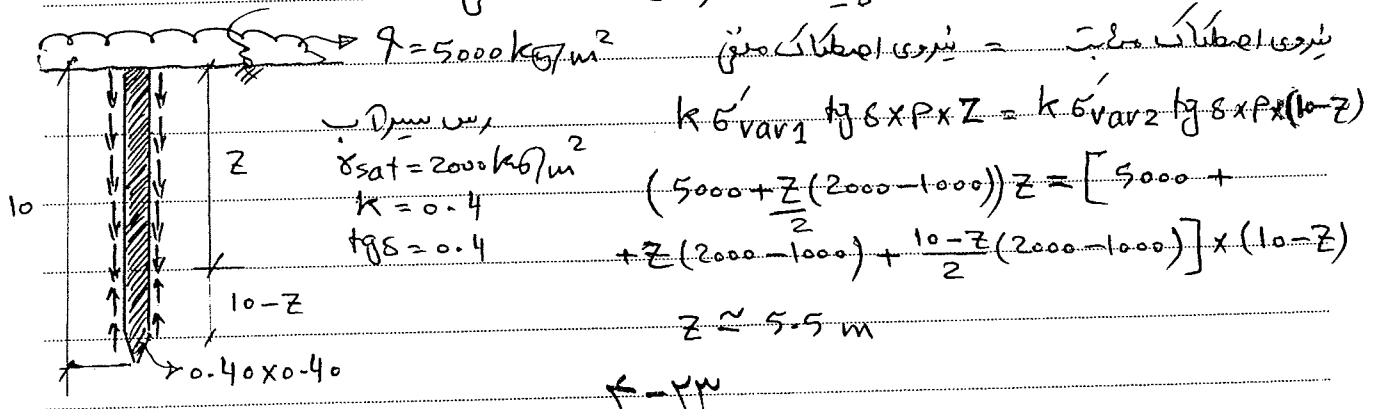 q = 5000 kg/m²
نیروی اصطکاک مثبت = نیروی اصطکاک منفی
رس سیراب
γsat = 2000 kg/m²
K = 0.4
tgδ = 0.4
kσ́var1 tgδ×P×Z = kσ́var2 tgδ×P×(10-Z)
(5000 + Z/2 (2000-1000)) Z = [5000 +
+ Z(2000-1000) + (10-Z)/2 (2000-1000)] × (10-Z)
Z ≃ 5.5 m
10
Z
10-Z
0.40×0.40
۴-۲۳